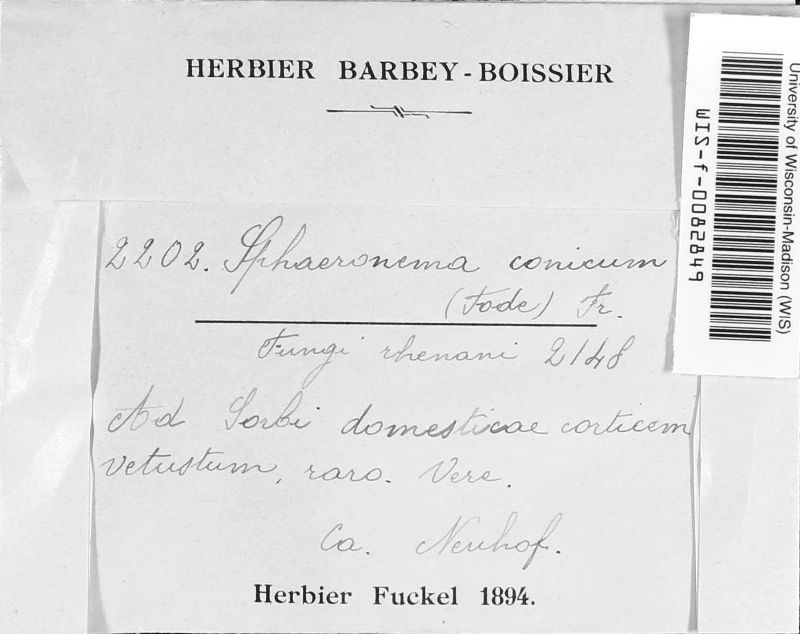 HERBIER BARBEY-BOISSIER
2202. Sphaeronema conicum
(Tode) Fr.
Fungi rhenani 2148
Ad Sorbi domesticae corticem
vetustum, raro. Vere.
Ca. Neuhof.
Herbier Fuckel 1894.
University of Wisconsin-Madison (WIS)
WIS-f-0082849